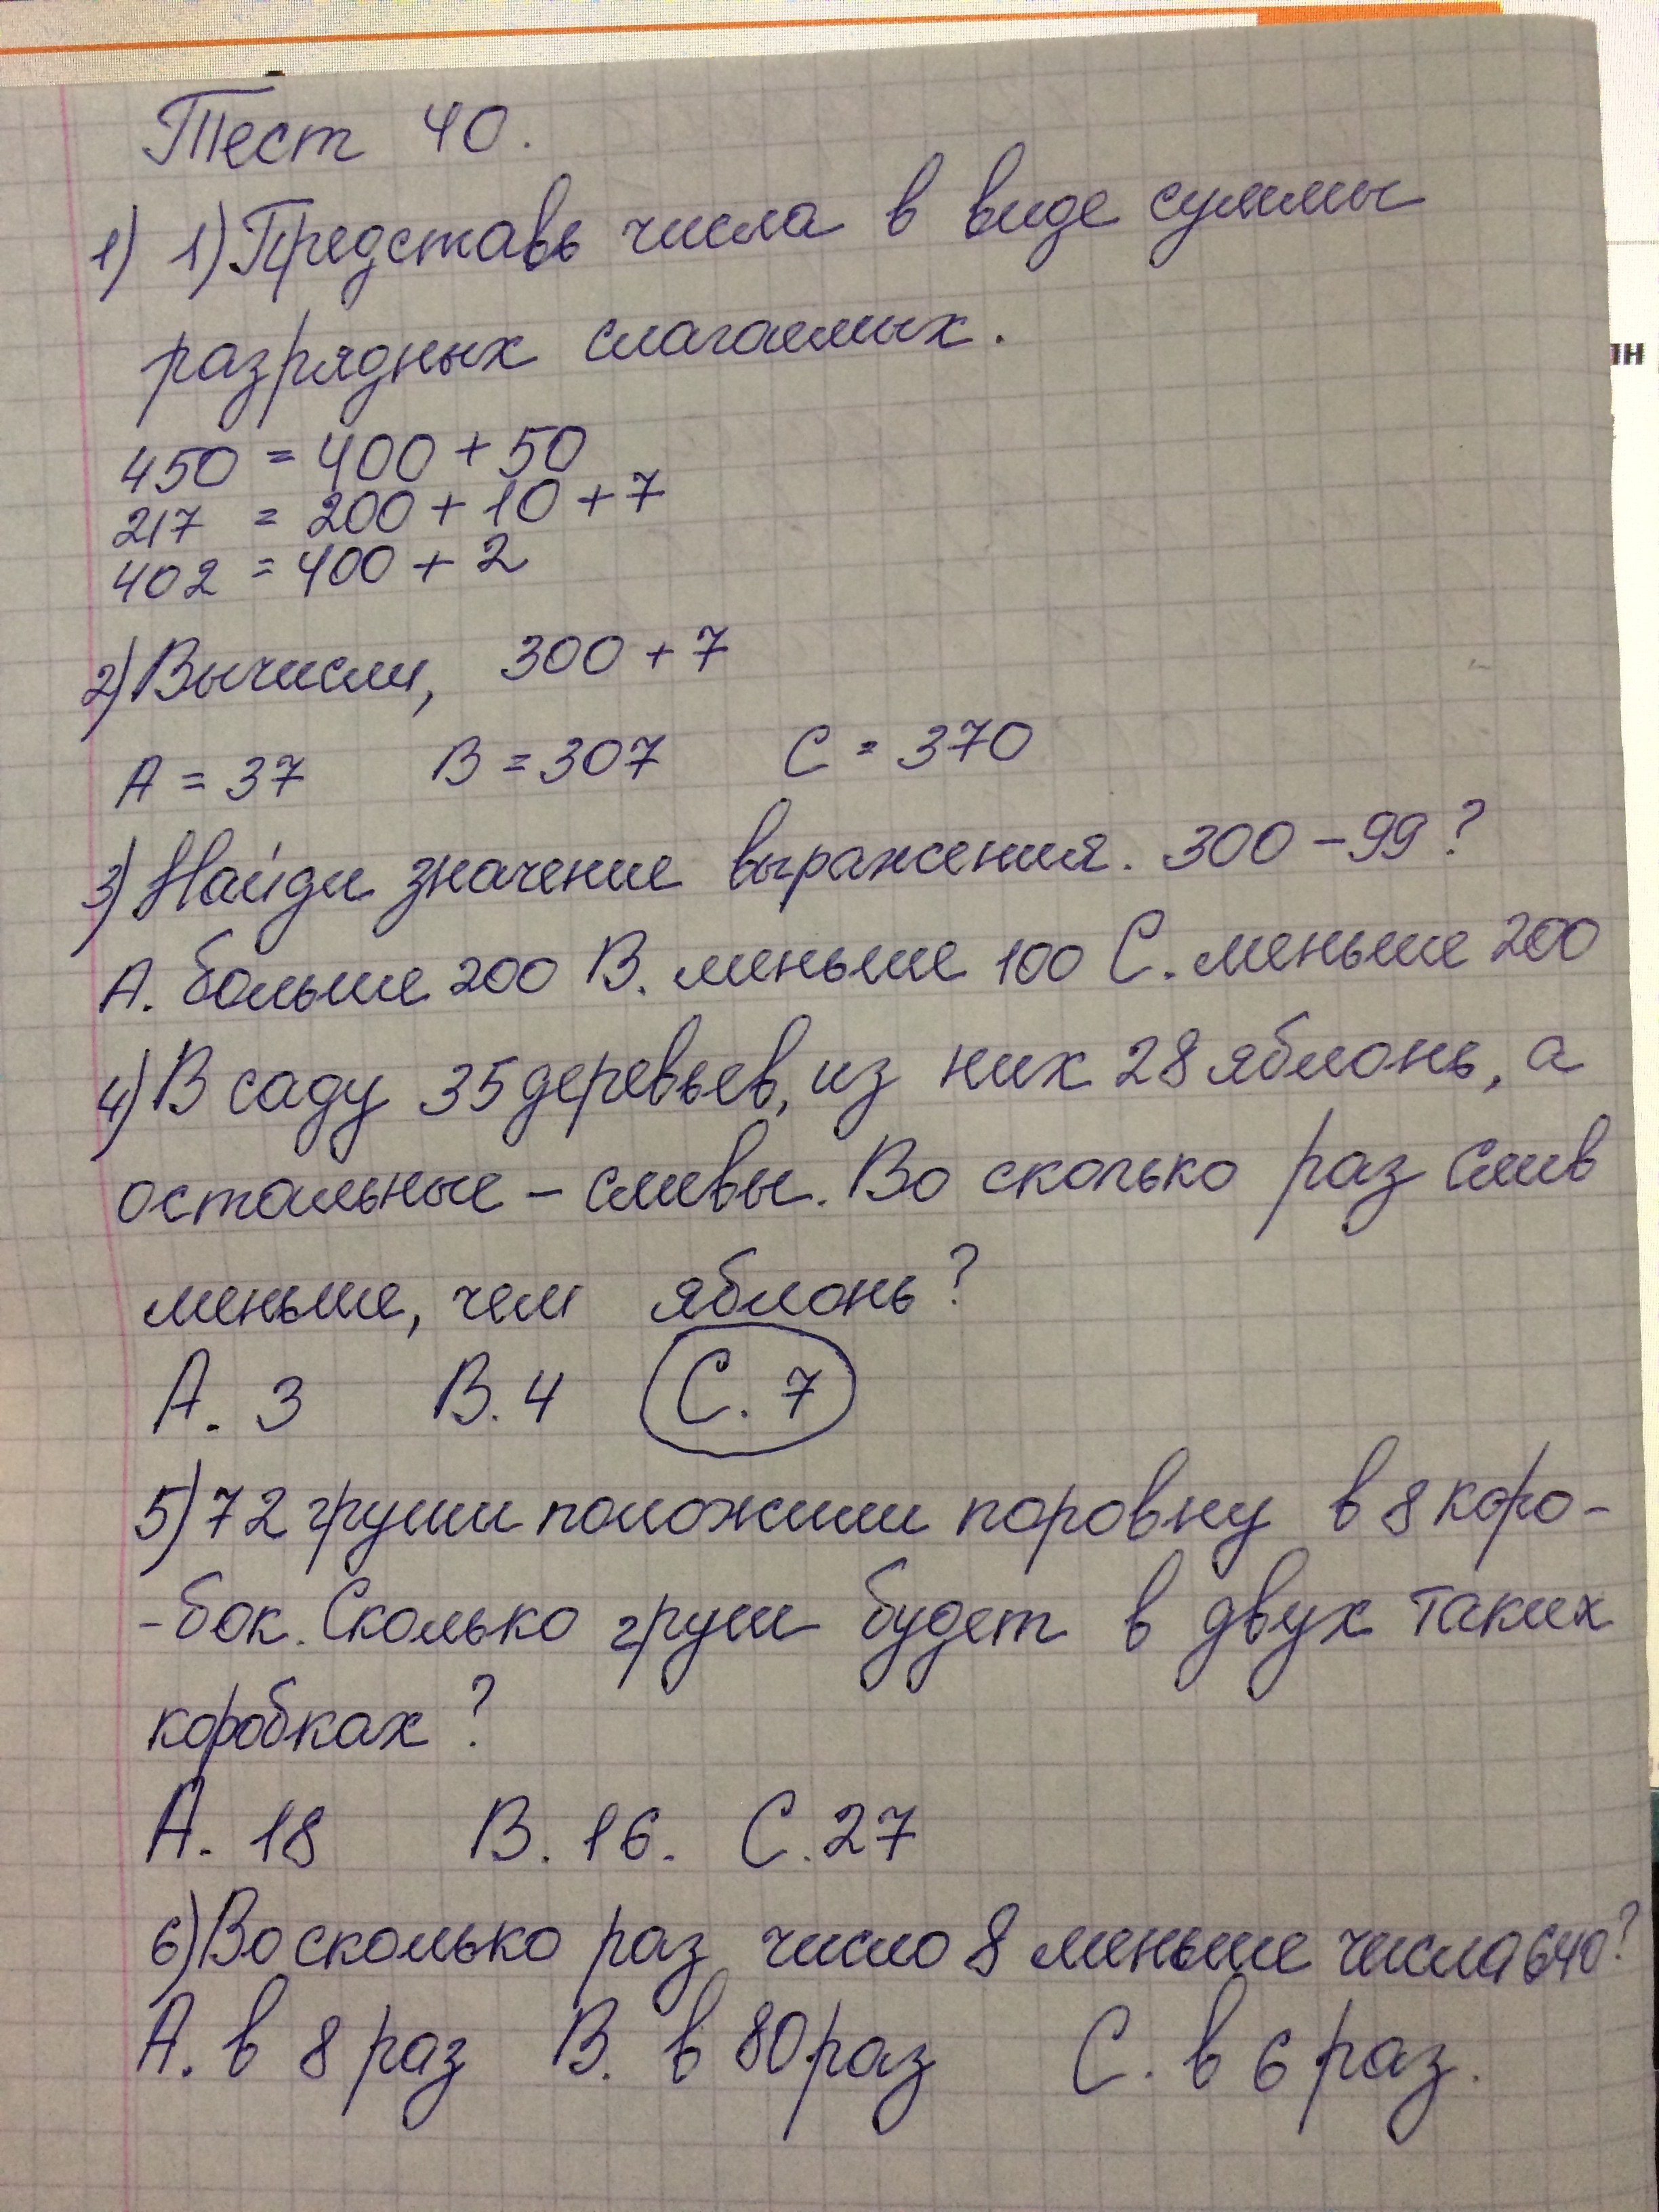 Тест 40.
1) 1) Представь числа в виде суммы
разрядных слагаемых.
450 = 400 + 50
217 = 200 + 10 + 7
402 = 400 + 2
2) Вычисли, 300 + 7
A = 37 B = 307 C = 370
3) Найди значение выражения. 300 - 99?
A. больше 200 B. меньше 100 C. меньше 200
4) В саду 35 деревьев, из них 28 яблонь, а
остальные - сливы. Во сколько раз слив
меньше, чем яблонь?
A. 3 B. 4 C. 7
5) 72 груши положили поровну в 8 коро-
-бок. Сколько груш будет в двух таких
коробках?
A. 18 B. 16. C. 27
6) Во сколько раз число 8 меньше числа 640?
A. в 8 раз B. в 80 раз C. в 6 раз.
лн